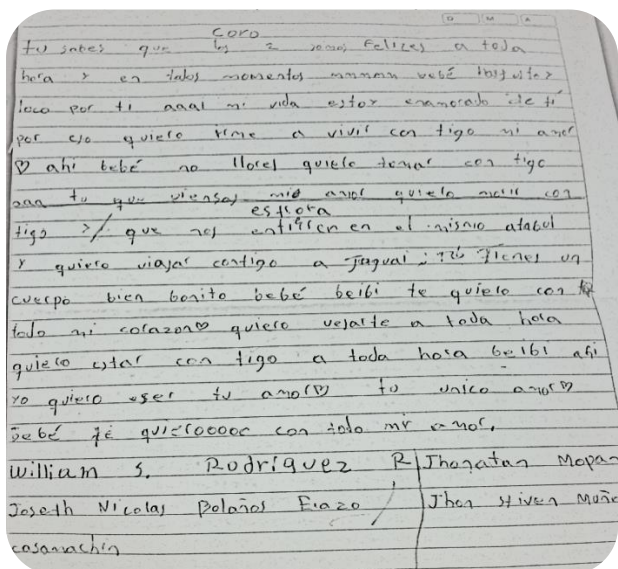 D M A
coro
tu sabes que los 2 somos Felices a toda
hora y en todos momentos mmmm bebé
loco por ti aaai mi vida estoy enamorado de ti
por eso quiero irme a vivir con tigo mi amor
♡ ahi bebé no llores quiero tomar con tigo
tu que piensas mio amor quiero morir con
esflora
tigo y que nos en el mismo atabul
y quiero viajar contigo a Tienes un
cuerpo bien bonito bebé beibi te quiero con
todo mi corazon♡ quiero vesarte a toda hora
quiero estar con tigo a toda hora beibi ahi
yo quiero eser tu amor♡ tu unico amor♡
bebé te quierooooo con todo mi amor.
William S. Rodríguez R Jhonatan Mopan
Joseth Nicolas Bolaños Erazo Jhon Stiven Muño
casamachin